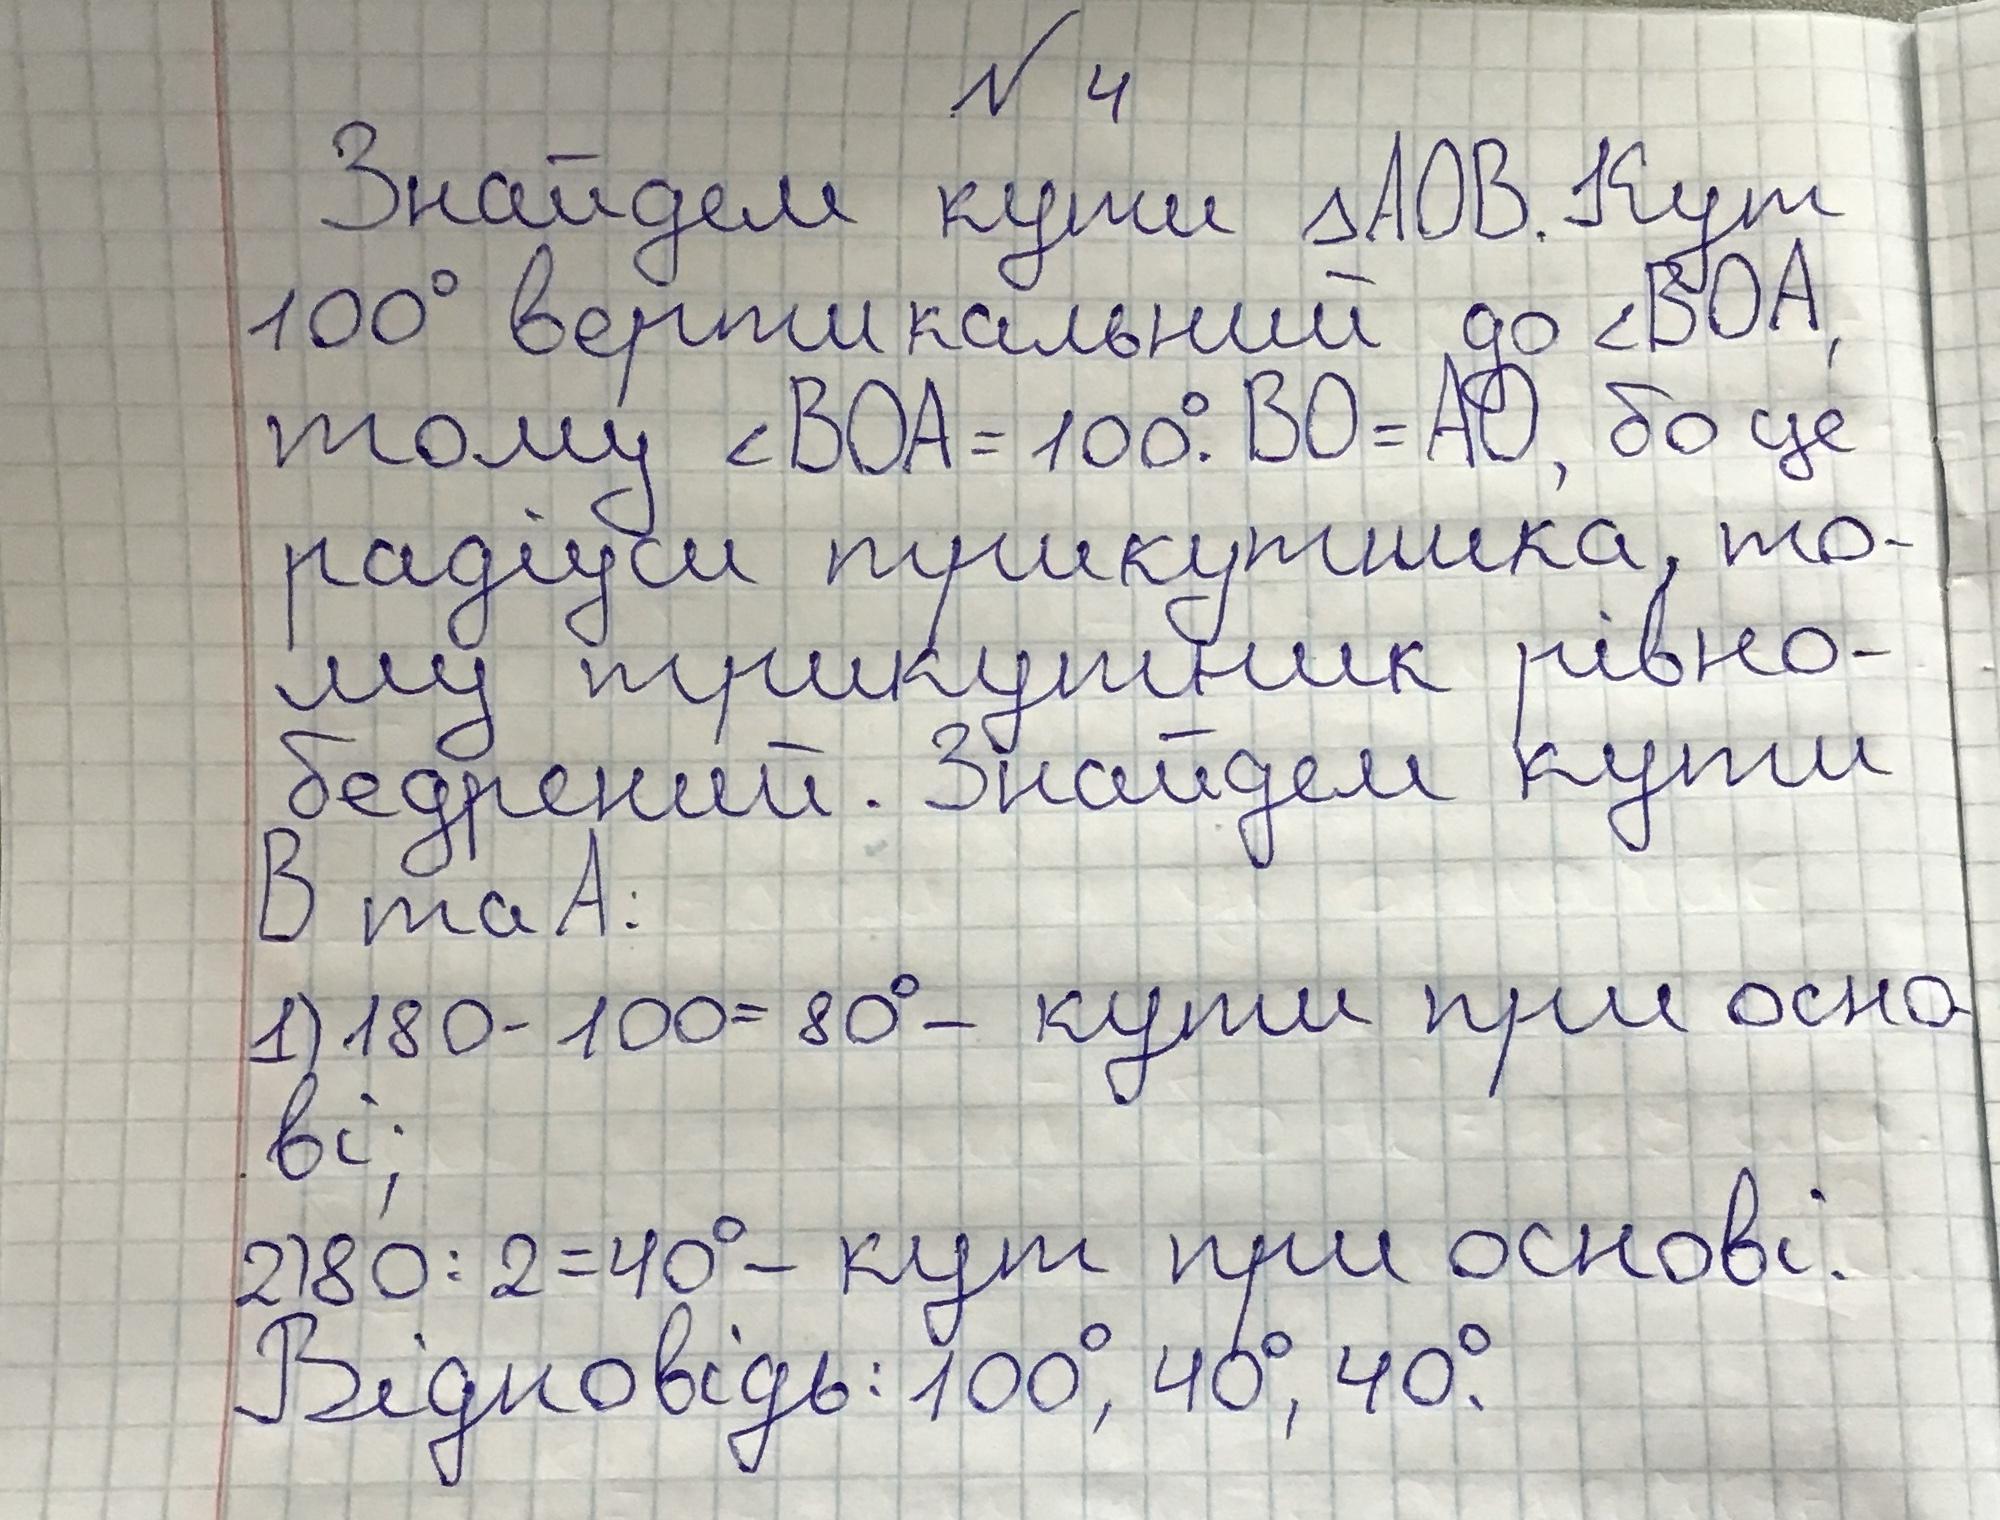 № 4
Знайдем кути ΔAOB. Кут
100° вертикальний до <BOA,
тому <BOA = 100°. BO = AO, бо це
радіуси трикутника, то-
му трикутник рівно-
бедрений. Знайдем кути
B та A:
1) 180 - 100 = 80° - кути при осно
ві;
2) 80 : 2 = 40° - кут при основі.
Відповідь: 100°, 40°, 40°.